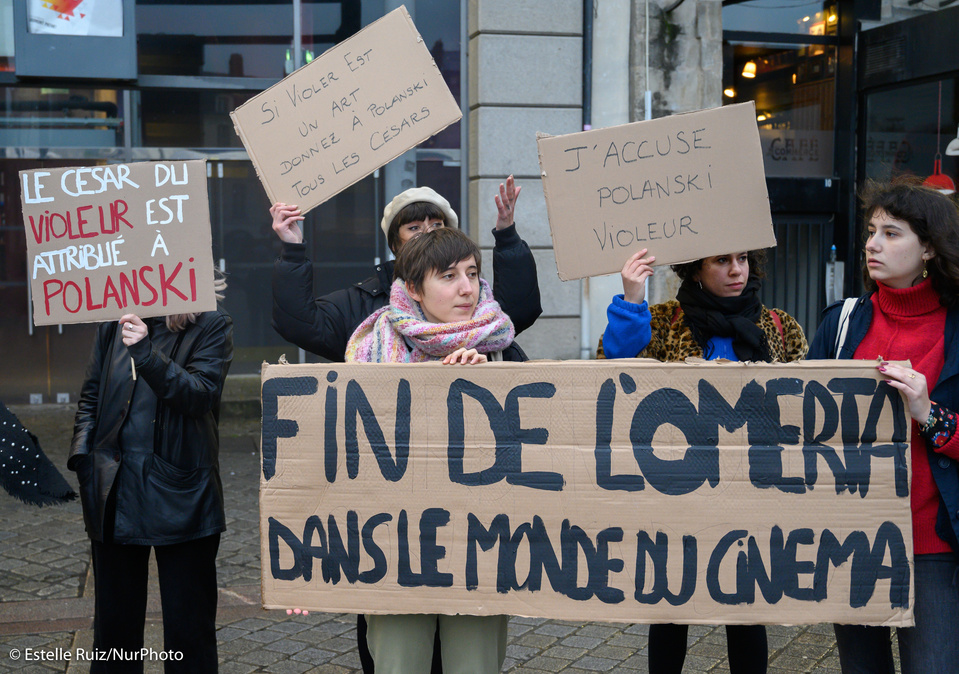 SI VIOLER EST
UN ART
DONNEZ À POLANSKI
TOUS LES CESARS
J'ACCUSE
POLANSKI
VIOLEUR
LE CÉSAR DU
VIOLEUR EST
ATTRIBUÉ À
POLANSKI
FIN DE L'OMERTA
DANS LE MONDE DU CINEMA
© Estelle Ruiz/NurPhoto